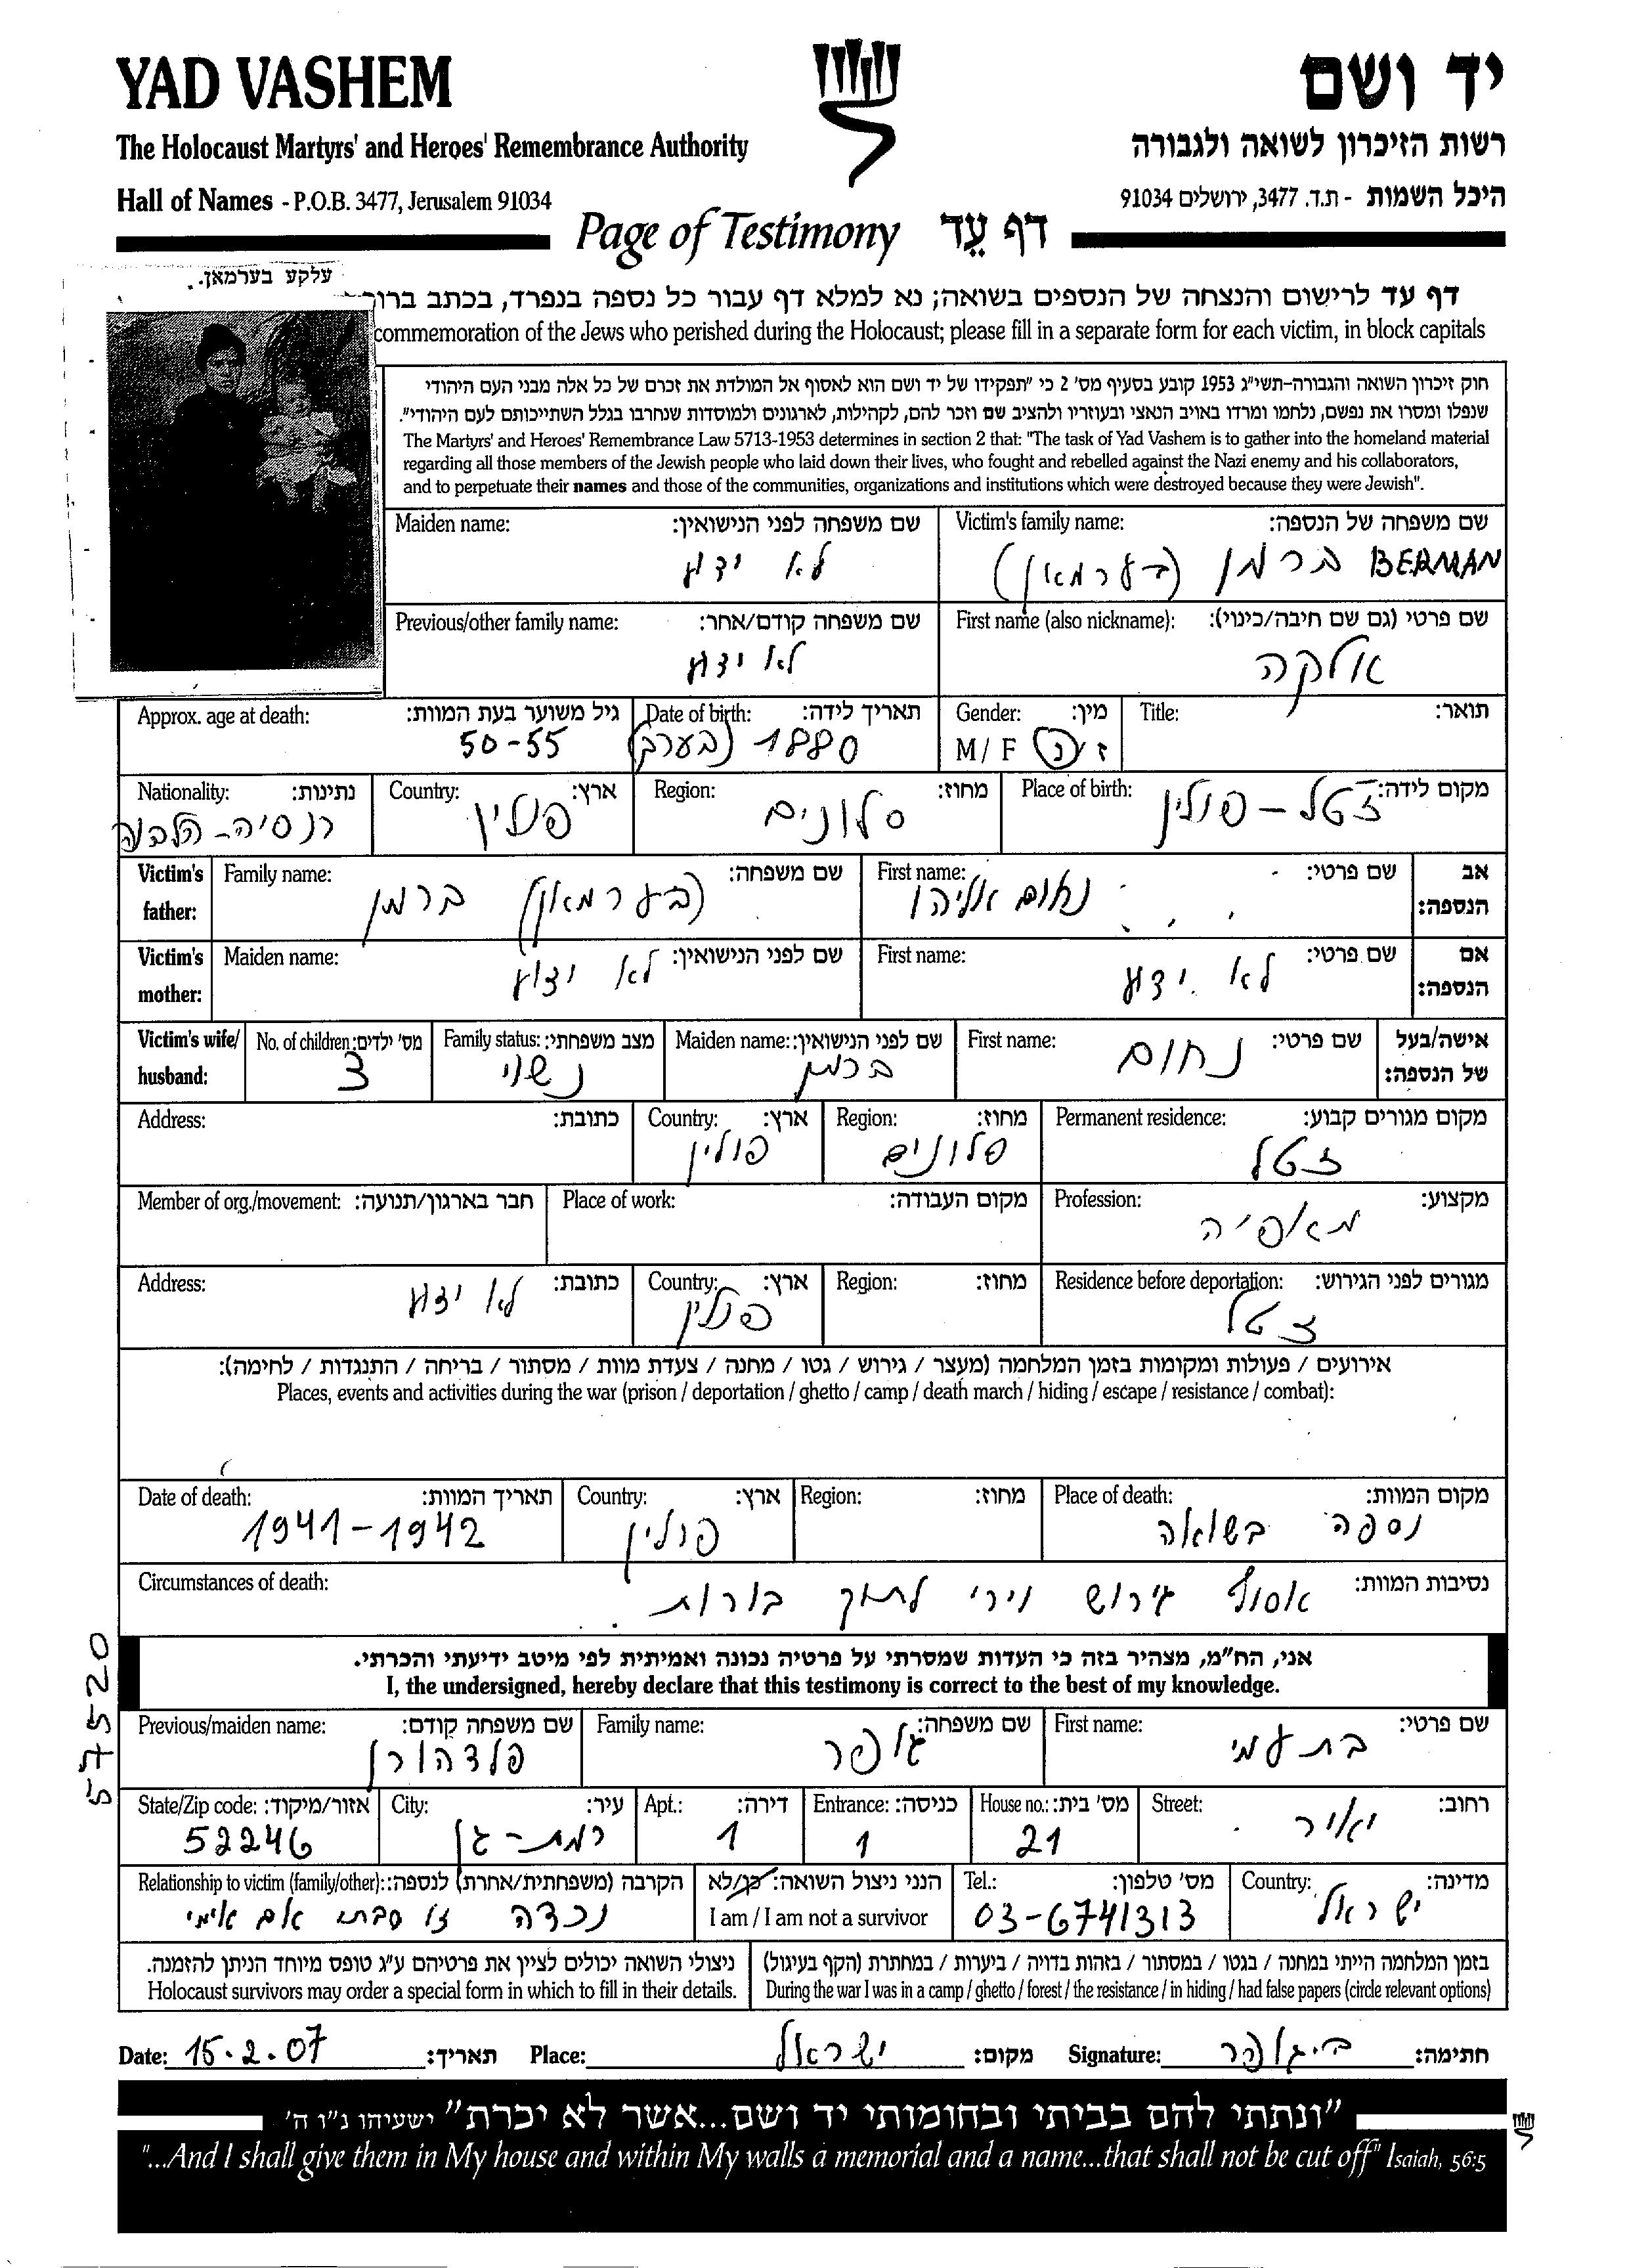 YAD VASHEM
יד ושם
The Holocaust Martyrs' and Heroes' Remembrance Authority
רשות הזיכרון לשואה ולגבורה
Hall of Names - P.O.B. 3477, Jerusalem 91034
היכל השמות - ת.ד. 3477, ירושלים 91034
Page of Testimony דף עד
עלקע בערמאן.
דף עד לרישום והנצחה של הנספים בשואה; נא למלא דף עבור כל נספה בנפרד, בכתב
commemoration of the Jews who perished during the Holocaust; please fill in a separate form for each victim, in block capitals
חוק זיכרון השואה והגבורה-תשי"ג 1953 קובע בסעיף מס' 2 כי "תפקידו של יד ושם הוא לאסוף אל המולדת את זכרם של כל אלה מבני העם היהודי
שנפלו ומסרו את נפשם, נלחמו ומרדו באויב הנאצי ובעוזריו ולהציב שם וזכר להם, לקהילות, לארגונים ולמוסדות שנחרבו בגלל השתייכותם לעם היהודי".
The Martyrs' and Heroes' Remembrance Law 5713-1953 determines in section 2 that: "The task of Yad Vashem is to gather into the homeland material
regarding all those members of the Jewish people who laid down their lives, who fought and rebelled against the Nazi enemy and his collaborators,
and to perpetuate their names and those of the communities, organizations and institutions which were destroyed because they were Jewish".
Victim's family name: שם משפחה של הנספה:
BERMAN ברמן (בערמאן)
Maiden name: שם משפחה לפני הנישואין:
לא ידוע
First name (also nickname): שם פרטי (גם שם חיבה/כינוי):
אלקה
Previous/other family name: שם משפחה קודם/אחר:
לא ידוע
Title: תואר:
Gender: מין:
M / F ז / נ
Date of birth: תאריך לידה:
1880 (בערך)
Approx. age at death: גיל משוער בעת המוות:
50-55
Place of birth: מקום לידה:
זטל - פולין
Region: מחוז:
סלונים
Country: ארץ:
פולין
Nationality: נתינות:
רוסיה - הלבנה
Victim's father: אב הנספה:
First name: שם פרטי:
נחום אליהו
Family name: שם משפחה:
ברמן (בערמאן)
Victim's mother: אם הנספה:
First name: שם פרטי:
לא ידוע
Maiden name: שם לפני הנישואין:
לא ידוע
Victim's wife/husband: אישה/בעל של הנספה:
First name: שם פרטי:
נחום
Maiden name: שם לפני הנישואין:
ברמן
Family status: מצב משפחתי:
נשוי
No. of children: מס' ילדים:
3
Permanent residence: מקום מגורים קבוע:
זטל
Region: מחוז:
סלונים
Country: ארץ:
פולין
Address: כתובת:
Profession: מקצוע:
מאפיה
Place of work: מקום העבודה:
Member of org./movement: חבר בארגון/תנועה:
Residence before deportation: מגורים לפני הגירוש:
זטל
Region: מחוז:
Country: ארץ:
פולין
Address: כתובת:
לא ידוע
אירועים / פעולות ומקומות בזמן המלחמה (מעצר / גירוש / גטו / מחנה / צעדת מוות / מסתור / בריחה / התנגדות / לחימה):
Places, events and activities during the war (prison / deportation / ghetto / camp / death march / hiding / escape / resistance / combat):
Place of death: מקום המוות:
נספה בשואה
Region: מחוז:
Country: ארץ:
פולין
Date of death: תאריך המוות:
1941-1942
Circumstances of death: נסיבות המוות:
אסוף גירוש וירי לתוך בורות.
אני, הח"מ, מצהיר בזה כי העדות שמסרתי על פרטיה נכונה ואמיתית לפי מיטב ידיעתי והכרתי.
I, the undersigned, hereby declare that this testimony is correct to the best of my knowledge.
First name: שם פרטי:
בת עמי
Family name: שם משפחה:
גופר
Previous/maiden name: שם משפחה קודם:
פלדהורן
Street: רחוב:
יאיר
House no.: מס' בית:
21
Entrance: כניסה:
1
Apt.: דירה:
1
City: עיר:
רמת-גן
State/Zip code: אזור/מיקוד:
52246
Country: מדינה:
ישראל
Tel.: מס' טלפון:
03-6741313
הנני ניצול השואה: כן/לא
I am / I am not a survivor
Relationship to victim (family/other): הקרבה (משפחתית/אחרת) לנספה:
נכדה זו סבתי אם אימי
בזמן המלחמה הייתי במחנה / בגטו / במסתור / בזהות בדויה / ביערות / במחתרת (הקף בעיגול)
During the war I was in a camp / ghetto / forest / the resistance / in hiding / had false papers (circle relevant options)
ניצולי השואה יכולים לציין את פרטיהם ע"ג טופס מיוחד הניתן להזמנה.
Holocaust survivors may order a special form in which to fill in their details.
Date: 15.2.07 תאריך: Place: ישראל מקום: Signature: חתימה:
"ונתתי להם בביתי ובחומותי יד ושם...אשר לא יכרת" ישעיהו נ"ו ה'
"...And I shall give them in My house and within My walls a memorial and a name...that shall not be cut off" Isaiah, 56:5